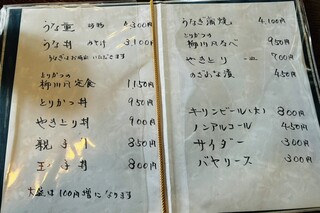 うな重 4,300円
うな丼 3,100円
とりかつの
柳川定食 1150円
とりかつ丼 950円
やきとり丼 900円
親子丼 850円
玉子丼 800円
大盛は100円増になります
うなぎ蒲焼 4,100円
とりかつの
柳川なべ 950円
やきとり 700円
のざわな漬 450円
キリンビール(大) 800円
ノンアルコール 450円
サイダー 300円
バヤリース 300円